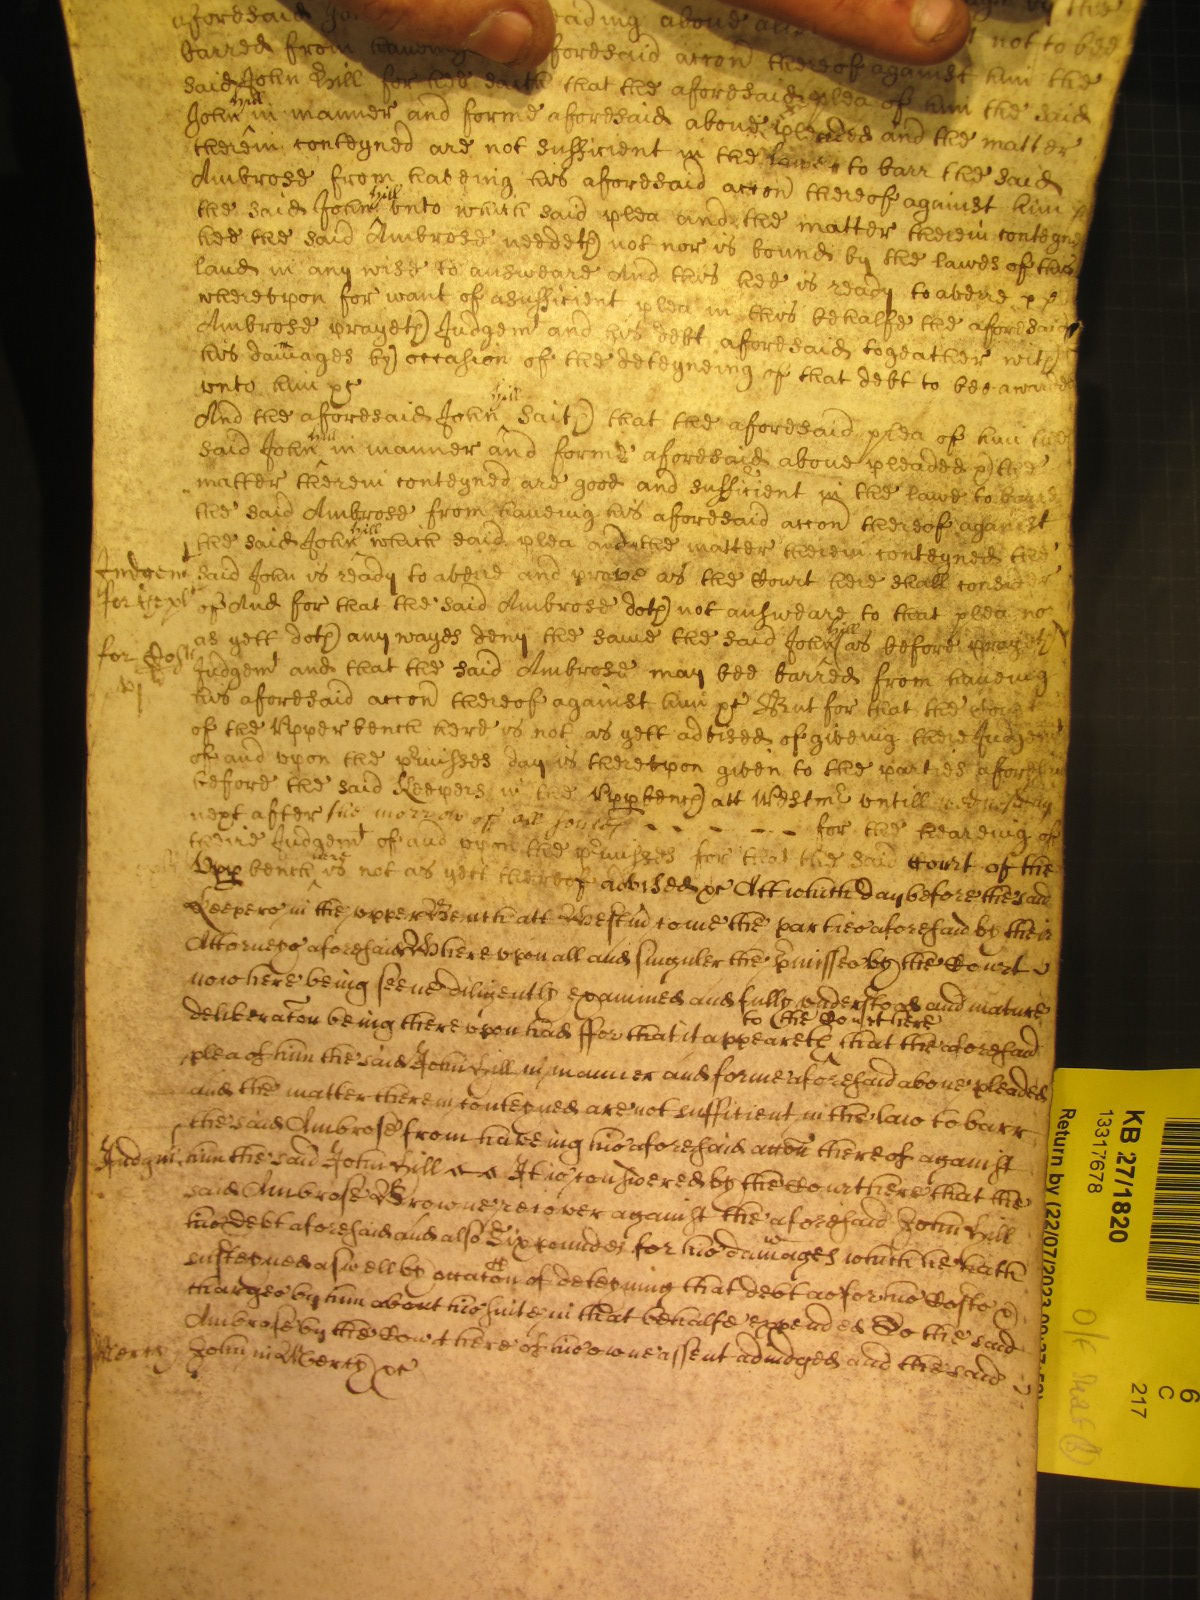 aforesaid John pleading above all not to bee
barred from haueing aforesaid accon thereof against him the
said John Hill for hee saith that the aforesaid plea of him the said
John Hill in manner and forme aforesaid aboue pleaded and the matter
therein conteyned are not sufficient in the lawe to barr the said
Ambrose from haueing his aforesaid accon thereof against him
the said John Hill vnto which said plea and the matter therein conteyned
hee the said Ambrose needeth not nor is bound by the lawes of this
land in any wise to answeare And this hee is ready to averre
wherevpon for want of asufficient plea in this behalfe the aforesaid
Ambrose prayeth Judgemt and his debt aforesaid togeather with
his damages by occasion of the deteyneing of that debt to bee awarded
vnto him &c
And the aforesaid John Hill saith that the aforesaid plea of him the
said John Hill in manner and forme aforesaid aboue pleaded & the
matter therein conteyned are good and sufficient in the lawe to barre
the said Ambrose from haueing his aforesaid accon thereof against
the said John Hill which said plea and the matter therein conteyned the
said John is ready to averre and prove as the Court here shall consider
of And for that the said Ambrose doth not answeare to that plea no
as yett doth any wayes deny the same the said John Hill as before prayeth
Judgemt and that the said Ambrose may bee barred from haueing
his aforesaid accon thereof against him &c But for that the Court
of the Vpper bench here is not as yett advised of giveing there Judgemt
of and vpon the prmisses day is therevpon given to the parties aforesaid
before the said Keepers in the Vpp bench att Westmr vntill wednesday
next after the morrow of all soules - - - - - - for the heareing of
theire Judgemt of and vpon the prmisses for that the said Court of the
Vpp bench here is not as yett thereof advised &c Att which day before the said
Keepers in the vpper Bench att Westm come the parties aforesaid by their
Attorneys aforesaid Wherevpon all and singuler the pmisses by the Court
now here being seene diligently examined and fully vnderstood and mature
deliberacon being there vpon had ffor that it appeareth to the Court here that the aforesaid
plea of him the said John Hill in manner and forme aforesaid aboue pleaded
and the matter therein conteyned are not sufficient in the law to barr
the said Ambrose from haveing his aforesaid accon thereof against
Judgmt him the said John Hill It is considered by the Court here that the
said Ambrose Browne recover against the aforesaid John Hill
his debt aforesaid and also Six poundes for his damages which he hath
susteyned aswell by occacon of deteyning that debt as for his Costs &
charges by him about his suite in that behalfe expended To the said
Ambrose by the Court here of his owne assent adiudged and the said
Mercy John in Mercy &c
Judgemt
for ye plt
for Costs
vjli
KB 27/1820
13317678
Return by (22/07/2023
6
C
217